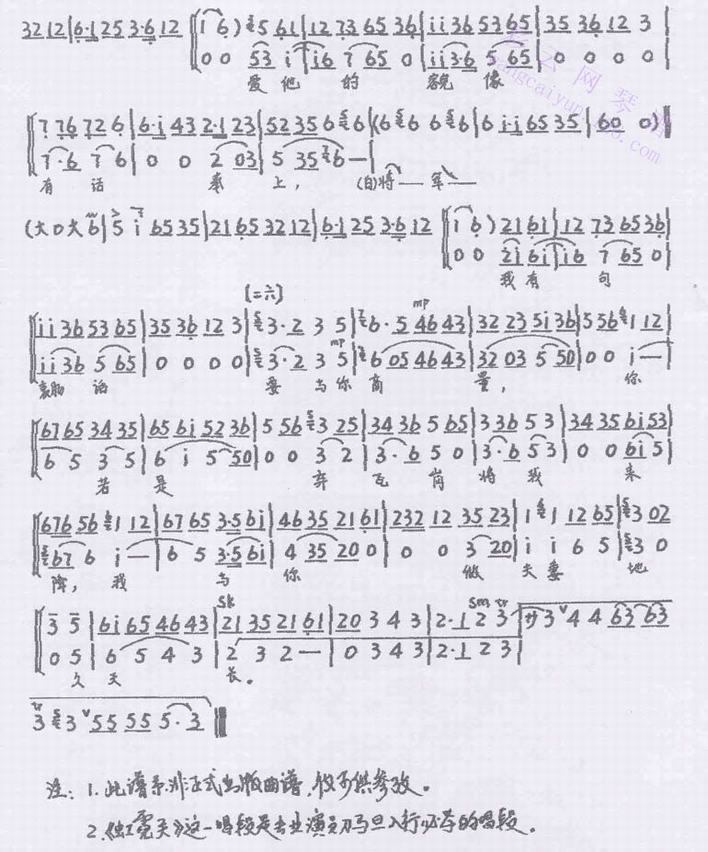 32 12 | 6·1 25 3·6 12 [ (1 6) 5 61 | 12 73 65 36 | i i 36 53 65 | 35 36 12 3 |
0 0 53 i | i6 7 65 0 | i i 3·6 5 65 | 0 0 0 0 |
爱 他 的 貌 像
7 76 72 6 | 6·i 43 2·1 23 | 52 35 6 6 | (6 6 6 6 | 6 i i 65 35 | 60 0)
7·6 7 6 | 0 0 2 03 | 5 35 6 — |
有 话 奉 上, (白)将 — 军 —
(大 0 大 6 | 5 i 65 35 | 21 65 32 12 | 6·1 25 3·6 12 [ (1 6) 21 61 | 12 73 65 36 |
0 0 2i 6i | i6 7 65 0 |
我 有 句
(二六)
i i 36 53 65 | 35 36 12 3 | 3·2 3 5 | 6·5 46 43 | 32 23 5i 36 | 5 56 1 12 |
mp
i i 36 5 65 | 0 0 0 0 | 3·2 3 5 | 6 05 46 43 | 32 03 5 50 | 0 0 i — |
mp
衷肠 话 要 与 你 商 量, 你
67 65 34 35 | 65 6i 52 36 | 5 56 3 25 | 34 36 5 65 | 3 36 5 3 | 34 35 6i 53 |
6 5 3 5 | 6 i 5 50 | 0 0 3 2 | 3·6 5 0 | 3·6 5 3 | 0 0 6i 5 |
若 是 弃 飞 岗 将 我 来
676 56 1 12 | 67 65 3·5 6i | 46 35 21 61 | 232 12 35 23 | 1 1 12 65 | 3 02
67 6 i — | 6 5 3·5 6i | 4 35 20 0 | 0 0 3 20 | i i 6 5 | 3 0
降, 我 与 你 做 夫 妻 地
3 5 | 6i 65 46 43 | 21 35 21 61 | 20 3 4 3 | 2·1 2 3 | サ 3 4 4 63 63
sk sm tr
0 5 | 6 5 4 3 | 2 3 2 — | 0 3 4 3 | 2·1 2 3 |
久 天 长。
tr
3 3 55 55 5·3
注: 1.此谱系非正式出版曲谱,仅可供参考。
2.《虹霓关》这一唱段是专业演员刀马旦入行必学的唱段。